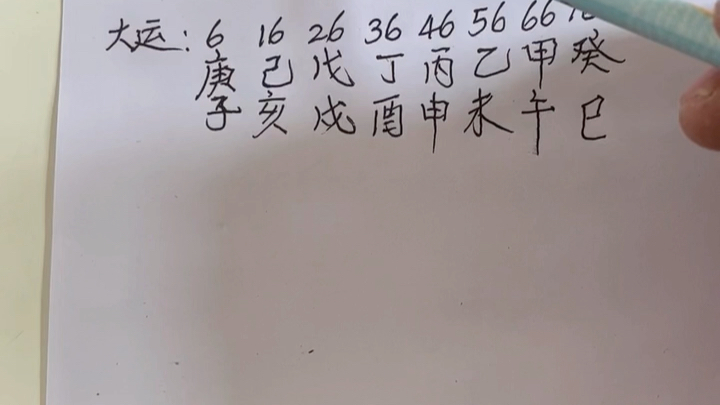 大运: 6 16 26 36 46 56 66
庚 己 戊 丁 丙 乙 甲 癸
子 亥 戌 酉 申 未 午 巳